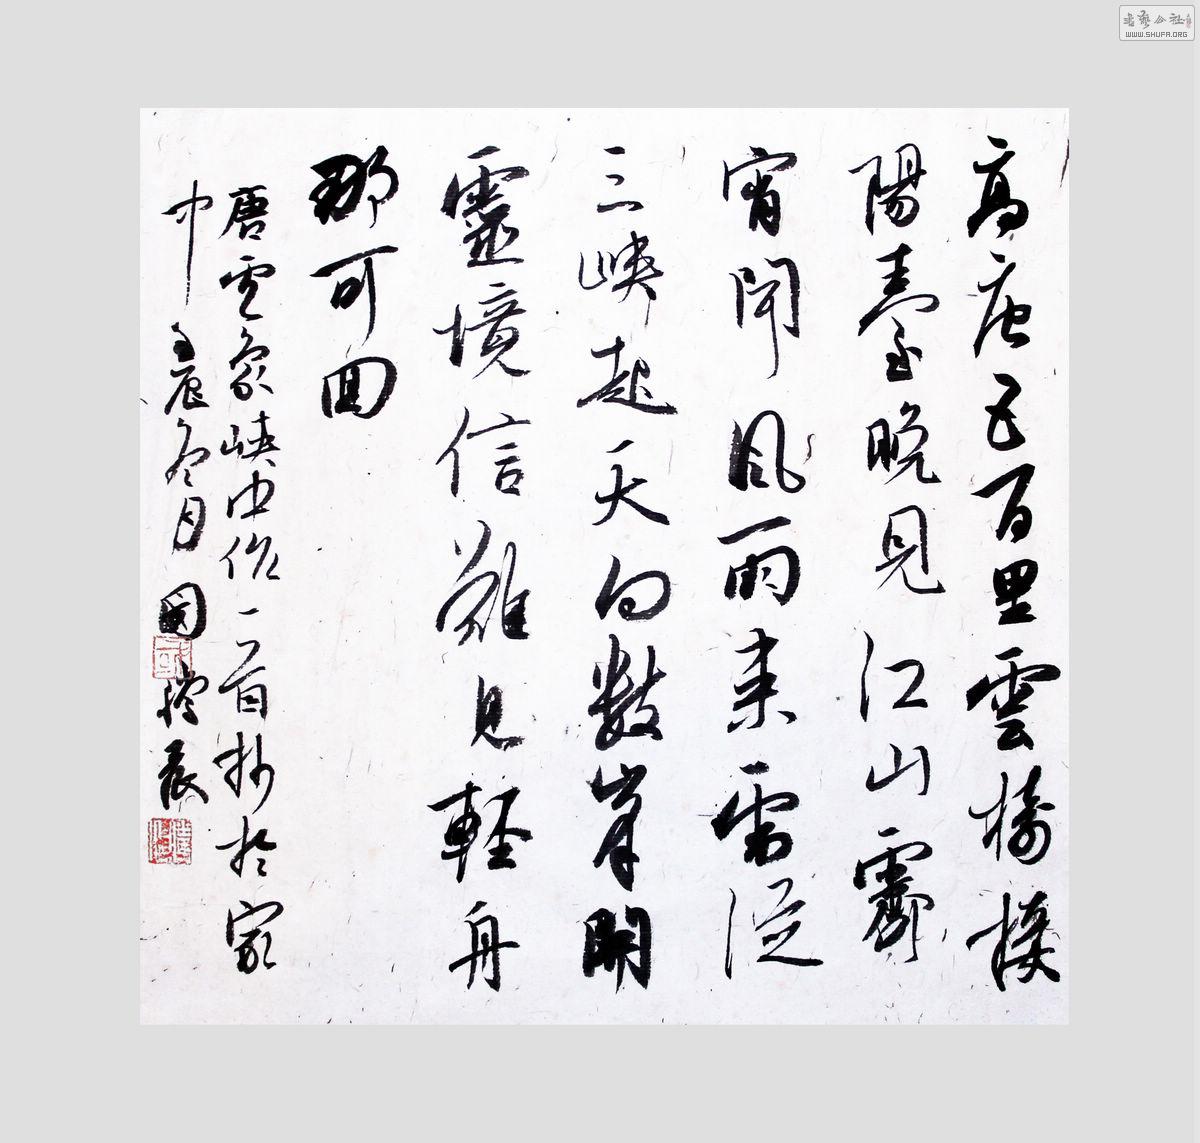 高唐五百里雲樹接
陽臺晚見江山霽
宵聞風雨来雲從
三峽起天向數峯開
靈境信難見輕舟
那可回
唐雲象峽中作一首抄於家
中 壬辰冬月國
书艺公社
WWW.SHUFA.ORG